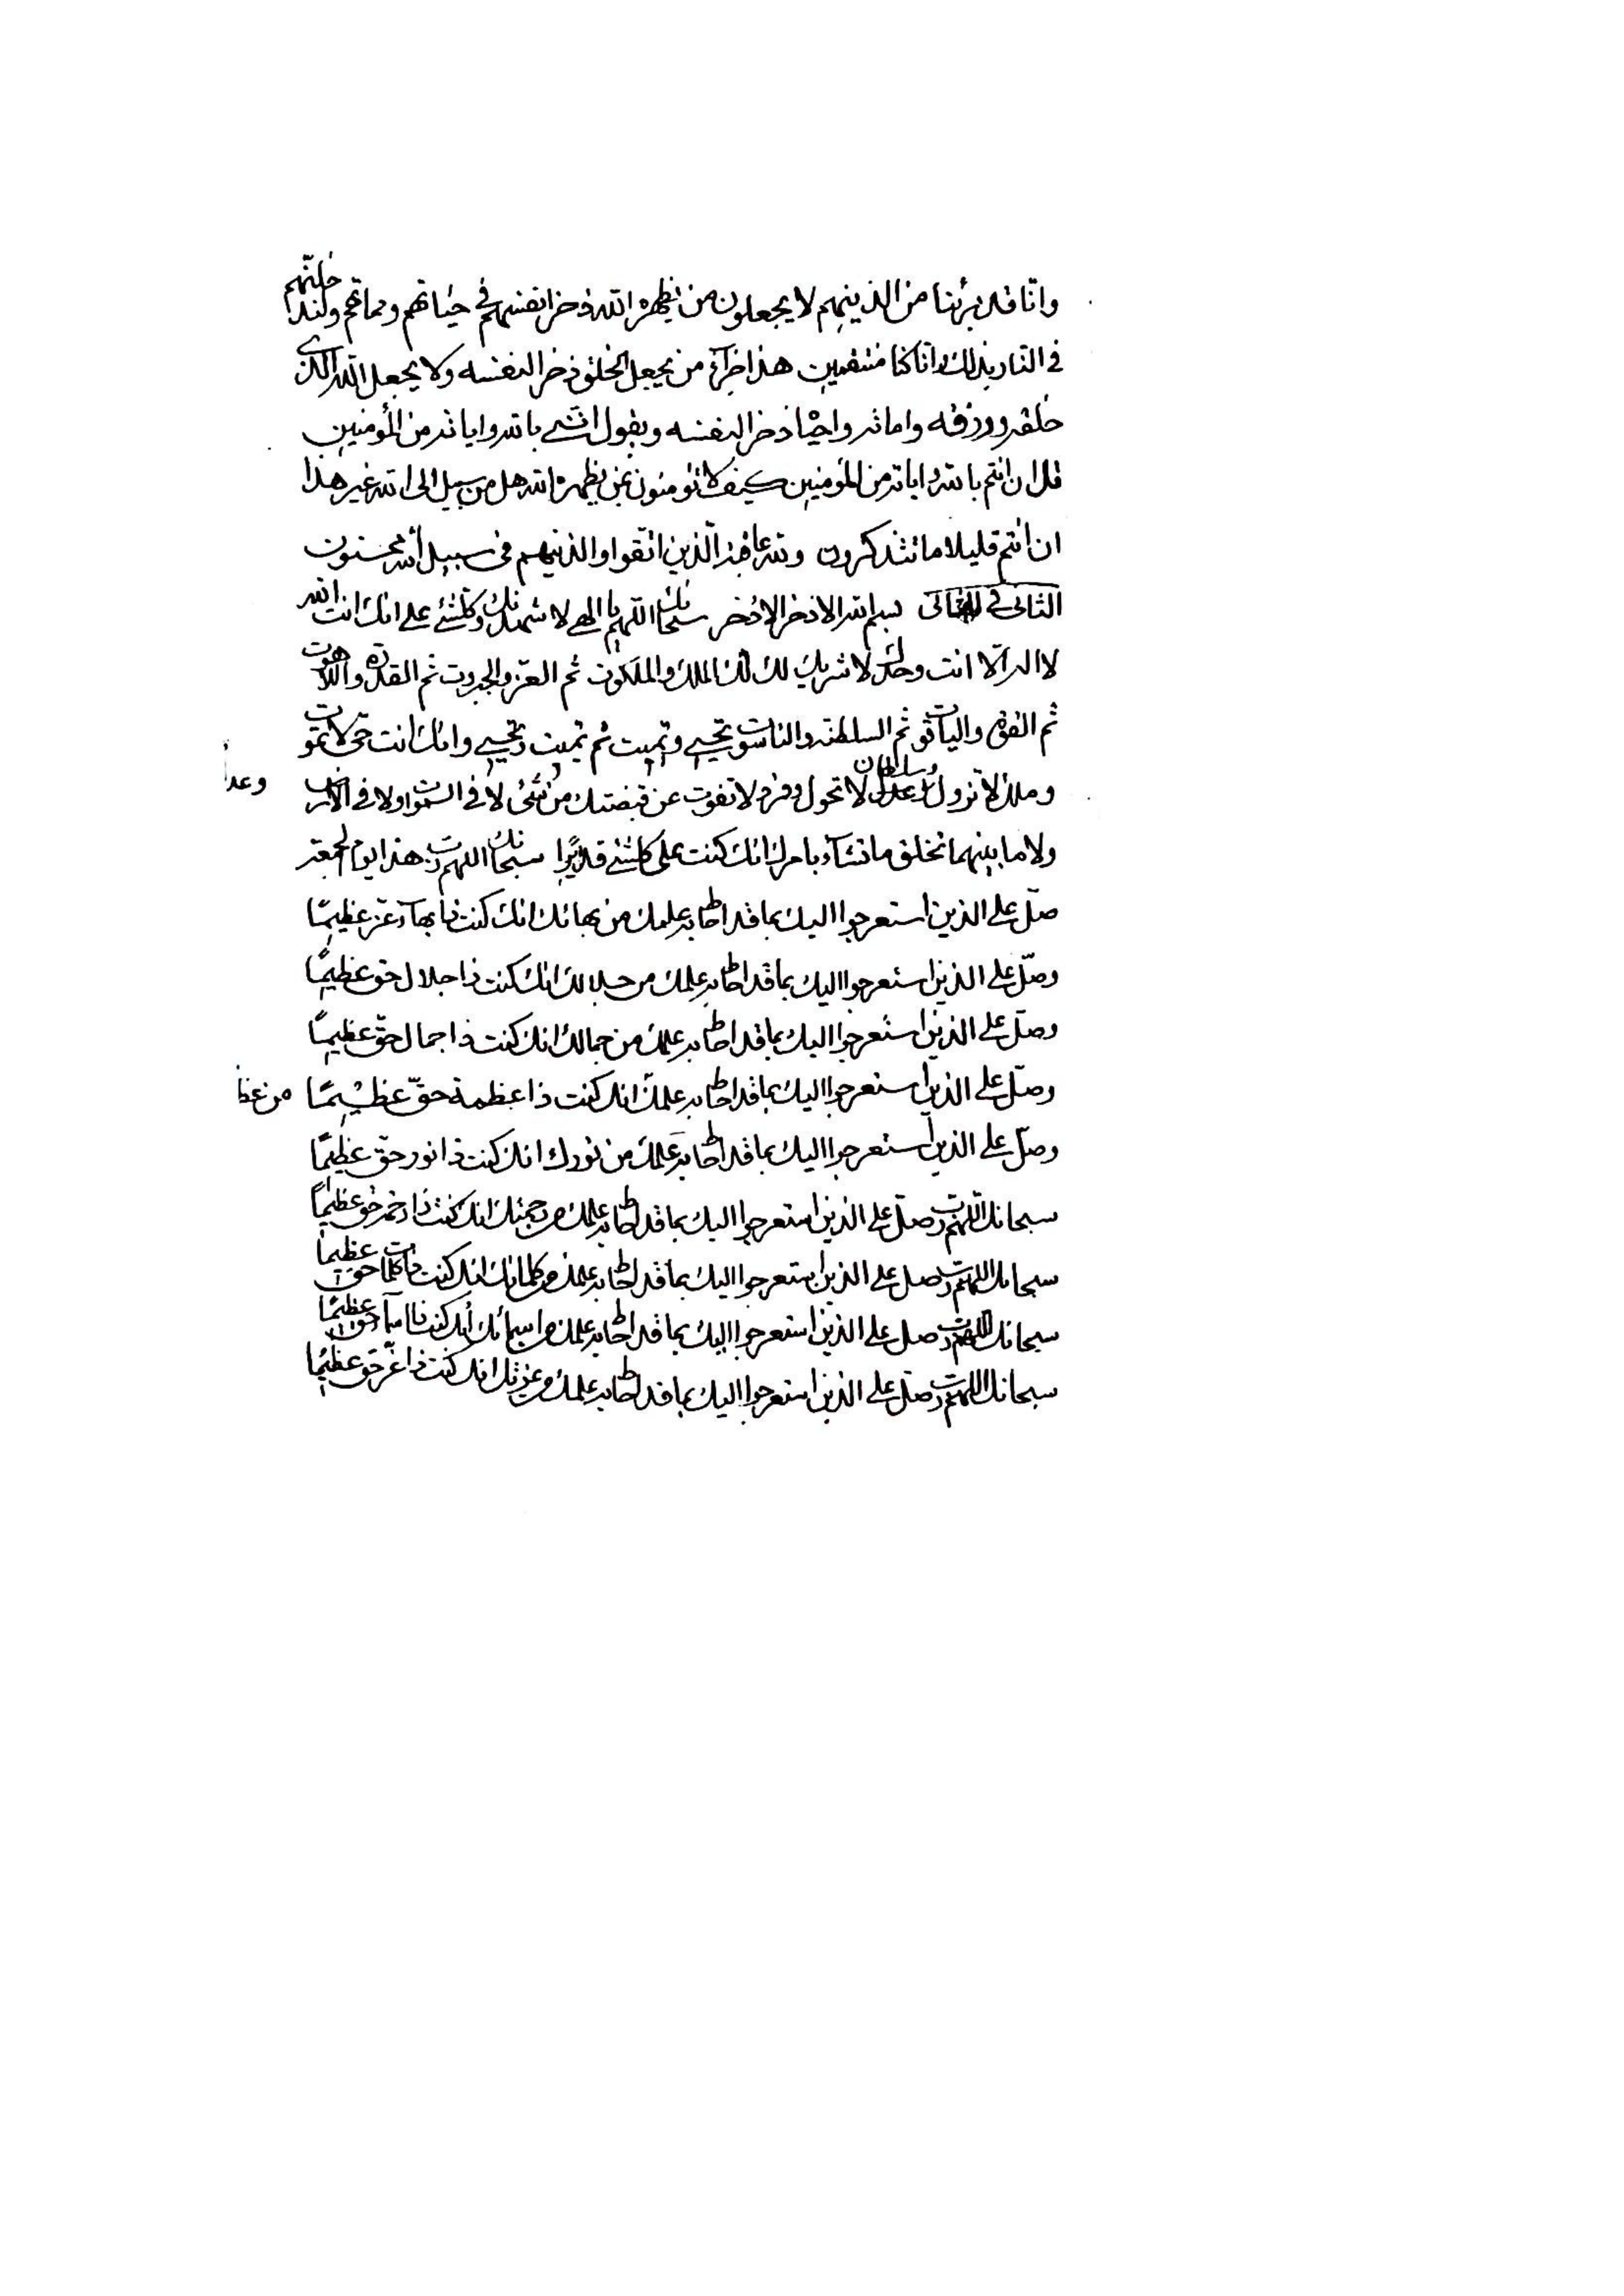 وانا قد برئنا من الذينهم لا يجعلون من يظهره الله ذخر انفسهم في حياتهم ومماتهم ولندخلنهم
في النار بذلك وانا كنا منتقمين هذا جزآء من يجعل الخلق ذخرا لنفسه ولا يجعل الله الذي
خلقه ورزقه واماته واحياه ذخرا لنفسه ويقول انني بالله واياته من المؤمنين
قل ان انتم بالله واياته من المؤمنين كيف لا تؤمنون بمن يظهره الله هل من سبيل الى الله غير هذا
ان انتم قليلا ما تتذكرون ولله عاقبة الذين اتقوا والذينهم في سبيل الله محسنون
الثاني في الثاني بسم الله الاذخر الاذخر سبحانك اللهم يا الهي لاشهدنك وكلشئ على انك انت الله
لا اله الا انت وحدك لا شريك لك لك الملك والملكوت ثم العز والجبروت ثم القدرة واللاهوت
ثم القوة والياقوت ثم السلطنة والناسوت تحيي وتميت ثم تميت وتحيي وانك انت حي لا تموت
وملك لا تزول وعدل وسلطان لا تحول وفرد لا تفوت عن قبضتك من شئ لا في السموات ولا في الارض وعدل
ولا ما بينهما تخلق ما تشآء بامرك انك كنت على كلشئ قديرا سبحانك اللهم رب هذا يوم الجمعة
صل على الذين استعرجوا اليك بما قد احاط به علمك من بهائك انك كنت ذا بهآء عز عظيما
وصل على الذين استعرجوا اليك بما قد احاط به علمك من جلالك انك كنت ذا جلال حق عظيما
وصل على الذين استعرجوا اليك بما قد احاط به علمك من جمالك انك كنت ذا جمال حق عظيما
وصل على الذين استعرجوا اليك بما قد احاط به علمك انك كنت ذا عظمة حق عظيما
وصل على الذين استعرجوا اليك بما قد احاط به علمك من نورك انك كنت ذا نور حق عظيما
سبحانك اللهم رب صل على الذين استعرجوا اليك بما قد احاط به علمك من رحمتك انك كنت ذا رحمة حق عظيما
سبحانك اللهم رب صل على الذين استعرجوا اليك بما قد احاط به علمك من كلماتك انك كنت ذا كلمات حق عظيما
سبحانك اللهم رب صل على الذين استعرجوا اليك بما قد احاط به علمك من اسمائك انك كنت ذا اسمآء حق عظيما
سبحانك اللهم رب صل على الذين استعرجوا اليك بما قد احاط به علمك من عزتك انك كنت ذا عز حق عظيما